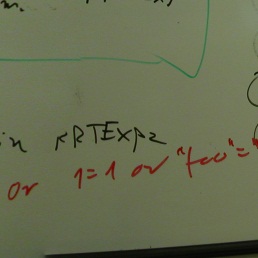 in RRTExp2
or 1=1 or "foo"="